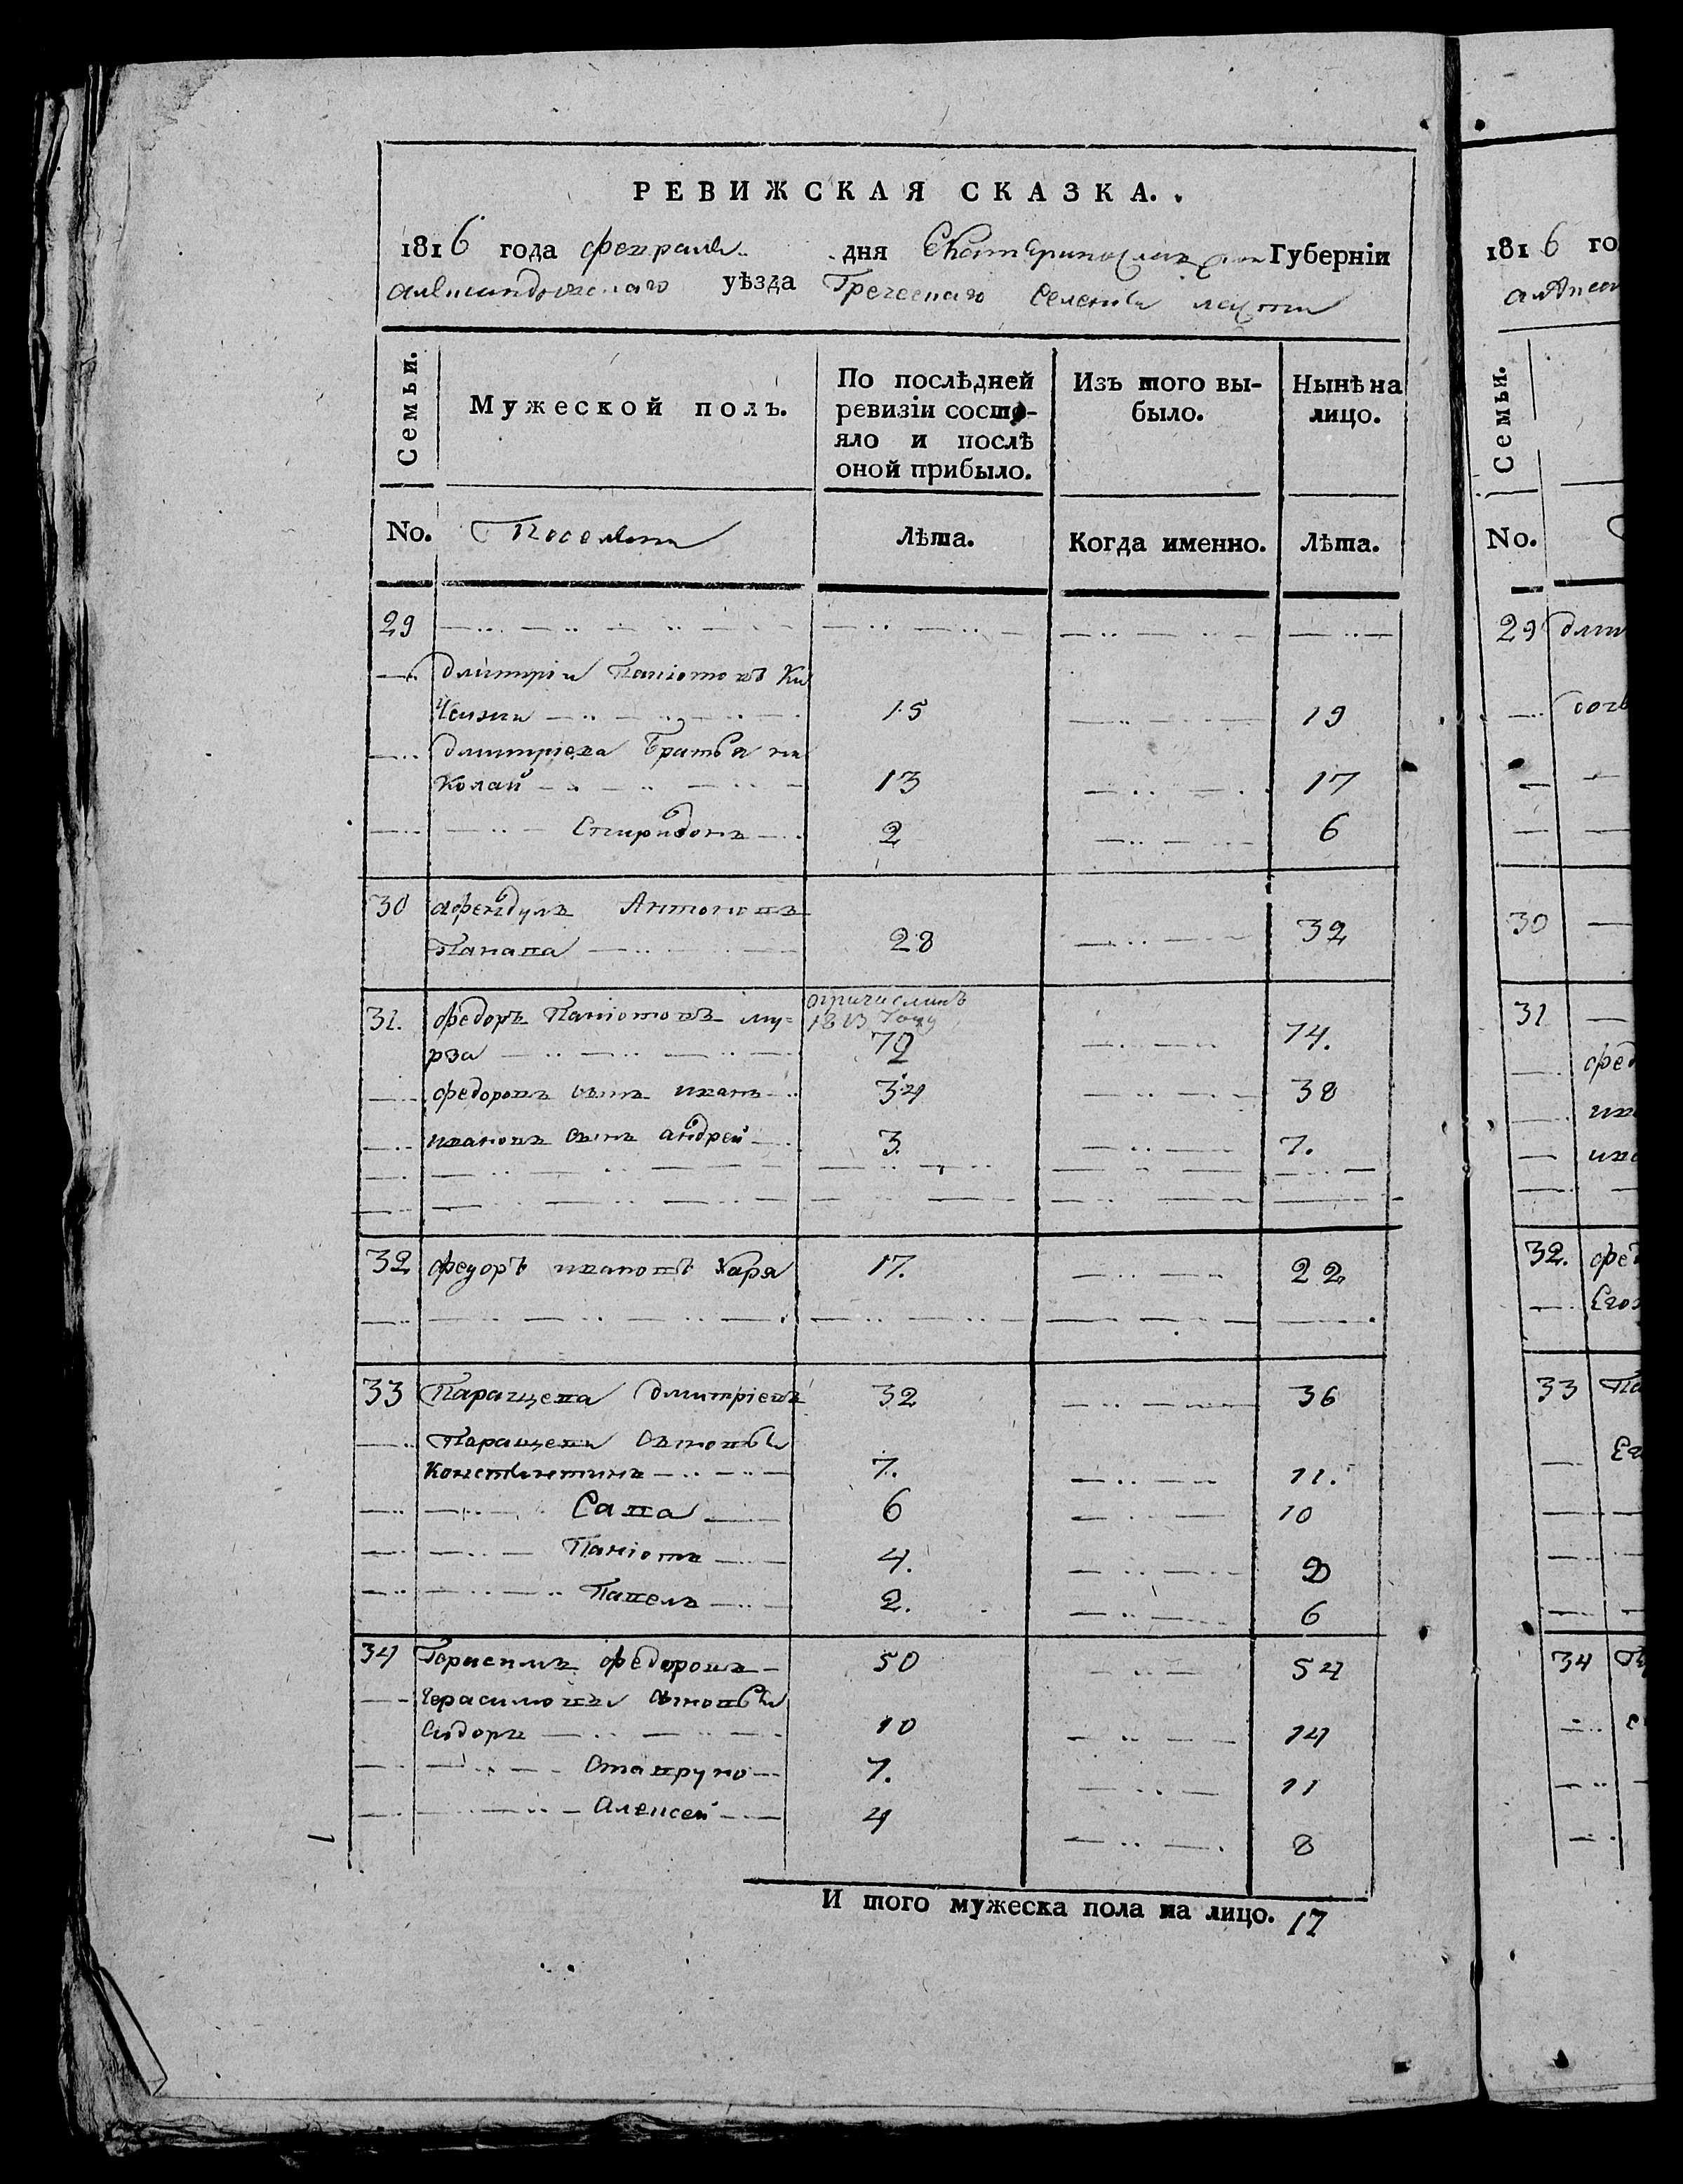 РЕВИЖСКАЯ СКАЗКА.
1816 года февраля дня Екатеринославской Губерніи
александровскаго уѣзда Греческаго Селенія
Семьи. Мужеской полъ. По послѣдней ревизіи состояло и послѣ оной прибыло. Изъ того выбыло. Нынѣ на лицо.
No. Поселяни Лѣта. Когда именно. Лѣта.
29
дмитріи Паніотовъ Ки
Чеизи 15 19
дмитріева Братья ни
Колай 13 17
Спиридонъ 2 6
30 афендулъ Антоновъ
Папава 28 32
31. федоръ Паніотовъ му=
рза 70 74.
федоровъ сынъ иванъ 34 38
ивановъ сынъ андрей 3. 7.
32 федоръ ивановъ Харя 17. 22
33 Паращева дмитріевъ 32 36
Паращевы сыновья
Константинъ 7. 11.
Сава 6 10
Паніотъ 4. 8
Павелъ 2. 6
34 Герасимъ федоровъ 50 54
Герасимовы сыновья
Сидоръ 10 14
Ставруно 7. 11
Алексей 4 8
И того мужеска пола на лицо. 17
1816 го
Семьи.
No.
29
30
31
32.
33
34